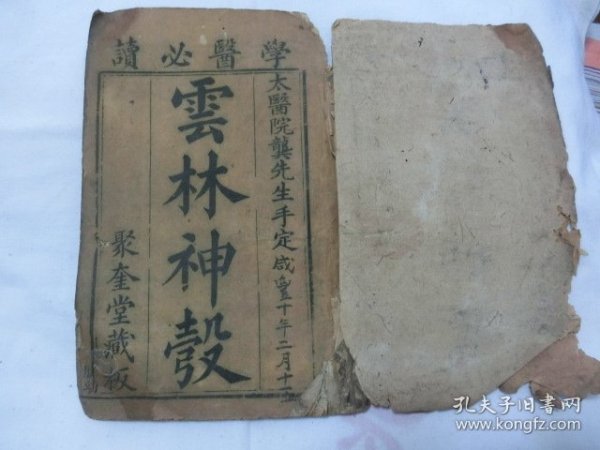 學醫必讀
太醫院龔先生手定咸豐十年二月十一
雲林神彀
聚奎堂藏板
孔夫子旧书网
www.kongfz.com